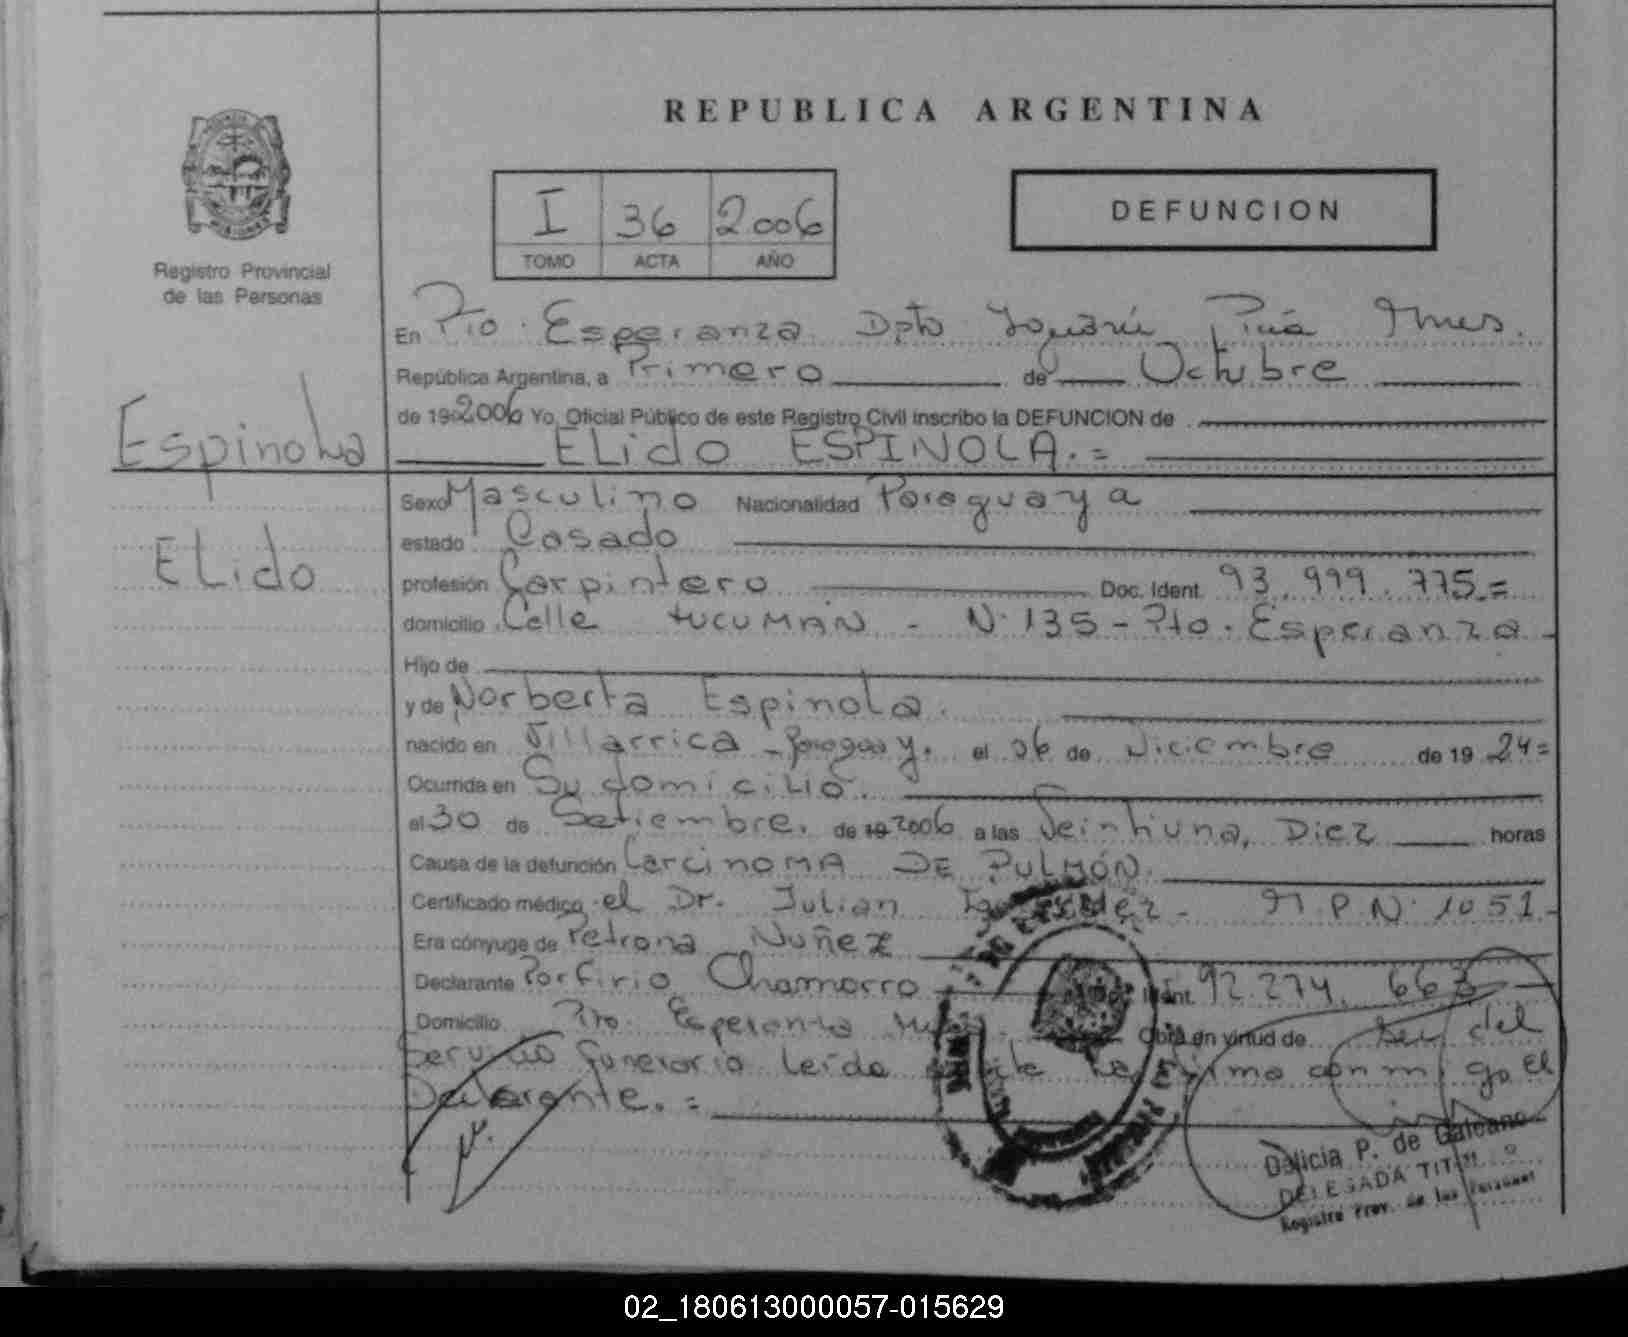 REPUBLICA ARGENTINA
I 36 2006
TOMO ACTA AÑO
DEFUNCION
Registro Provincial
de las Personas
En Pto. Esperanza Dpto Iguazú Pcia Mnes.
República Argentina, a Primero de Octubre
de 19 2006 Yo, Oficial Público de este Registro Civil inscribo la DEFUNCION de
ELido ESPINOLA.=
Espinola
ELido
Sexo Masculino Nacionalidad Paraguaya
estado Casado
profesión Carpintero Doc. Ident. 93.999.775.=
domicilio Calle tucuMÁN - Nº 135 - Pto. Esperanza -
Hijo de
y de Norberta Espinola.
nacido en Villarrica - Paraguay. el 06 de Diciembre de 19 24=
Ocurrida en Su domicilio.
el 30 de Setiembre. de 19 2006 a las Veintiuna, Diez horas
Causa de la defunción CarcinoMA DE PULMÓN.
Certificado médico el Dr. Julian M.P Nº 1051-
Era cónyuge de Petrona Nuñez
Declarante Porfirio Chamorro Doc. Ident. 92.274.663
Domicilio Pto. Esperanza Mnes. Obra en virtud de ser del
Servicio funerario leída el acta la firma conmigo el
Declarante.=
Dalicia P. de Galeano
DELEGADA TITULAR
Registro Prov. de las Personas
02_180613000057-015629